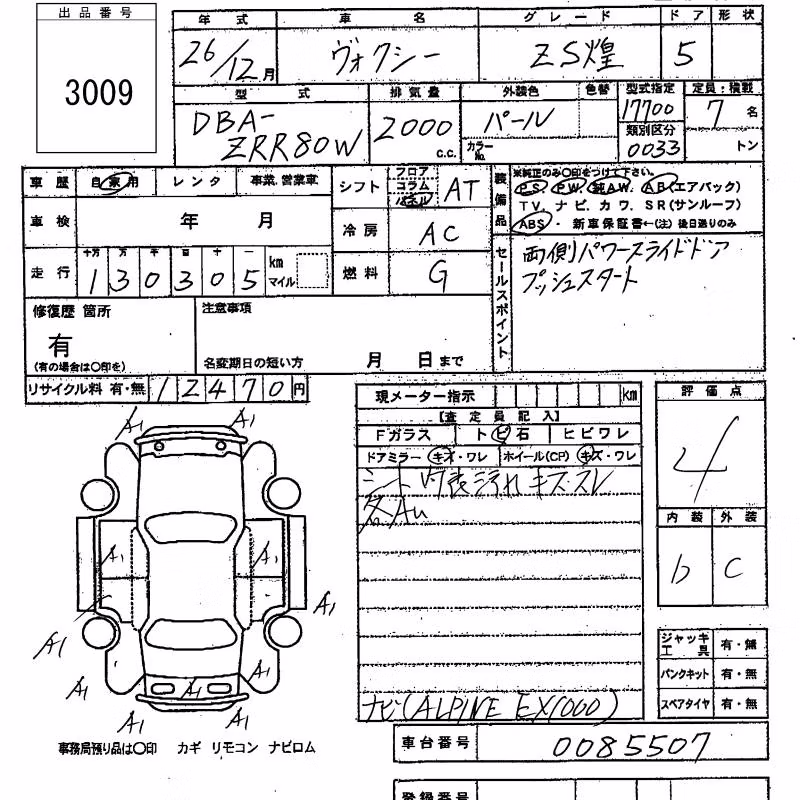 出品番号
3009
年式 車名 グレード ドア 形状
26/12月 ヴォクシー ZS煌 5
型式 排気量 外装色 色替 型式指定 定員・積載
DBA-ZRR80W 2000 c.c. パール カラーNo. 17700 7名
類別区分 0033 トン
車歴 自家用 レンタ 事業、営業車
シフト フロア コラム パネル AT
車検 年 月
冷房 AC
走行 十万 万 千 百 十 一
130305 km マイル
燃料 G
装備品 ※純正のみ○印をつけて下さい。
P.S. P.W. 純AW. A.B(エアバック)
TV. ナビ. カワ. SR(サンルーフ)
ABS・新車保証書←(注)後日送りのみ
セールスポイント
両側パワースライドドア
プッシュスタート
修復歴 箇所
有
(有の場合は○印を)
注意事項
名変期日の短い方 月 日まで
リサイクル料 有・無 12470円
現メーター指示 km
【査定員記入】
Fガラス トビ石 ヒビワレ
ドアミラー キズ・ワレ ホイール(CP) キズ・ワレ
シート 内装汚れ キズ・スレ
各Au
ナビ(ALPINE EX1000)
評価点
4
内装 外装
b C
ジャッキ工具 有・無
パンクキット 有・無
スペアタイヤ 有・無
A1 A1
A1 A1
A1 A1
A1 A1 A1
A1 A1
事務局預り品は○印 カギ リモコン ナビロム
車台番号 0085507
登録番号